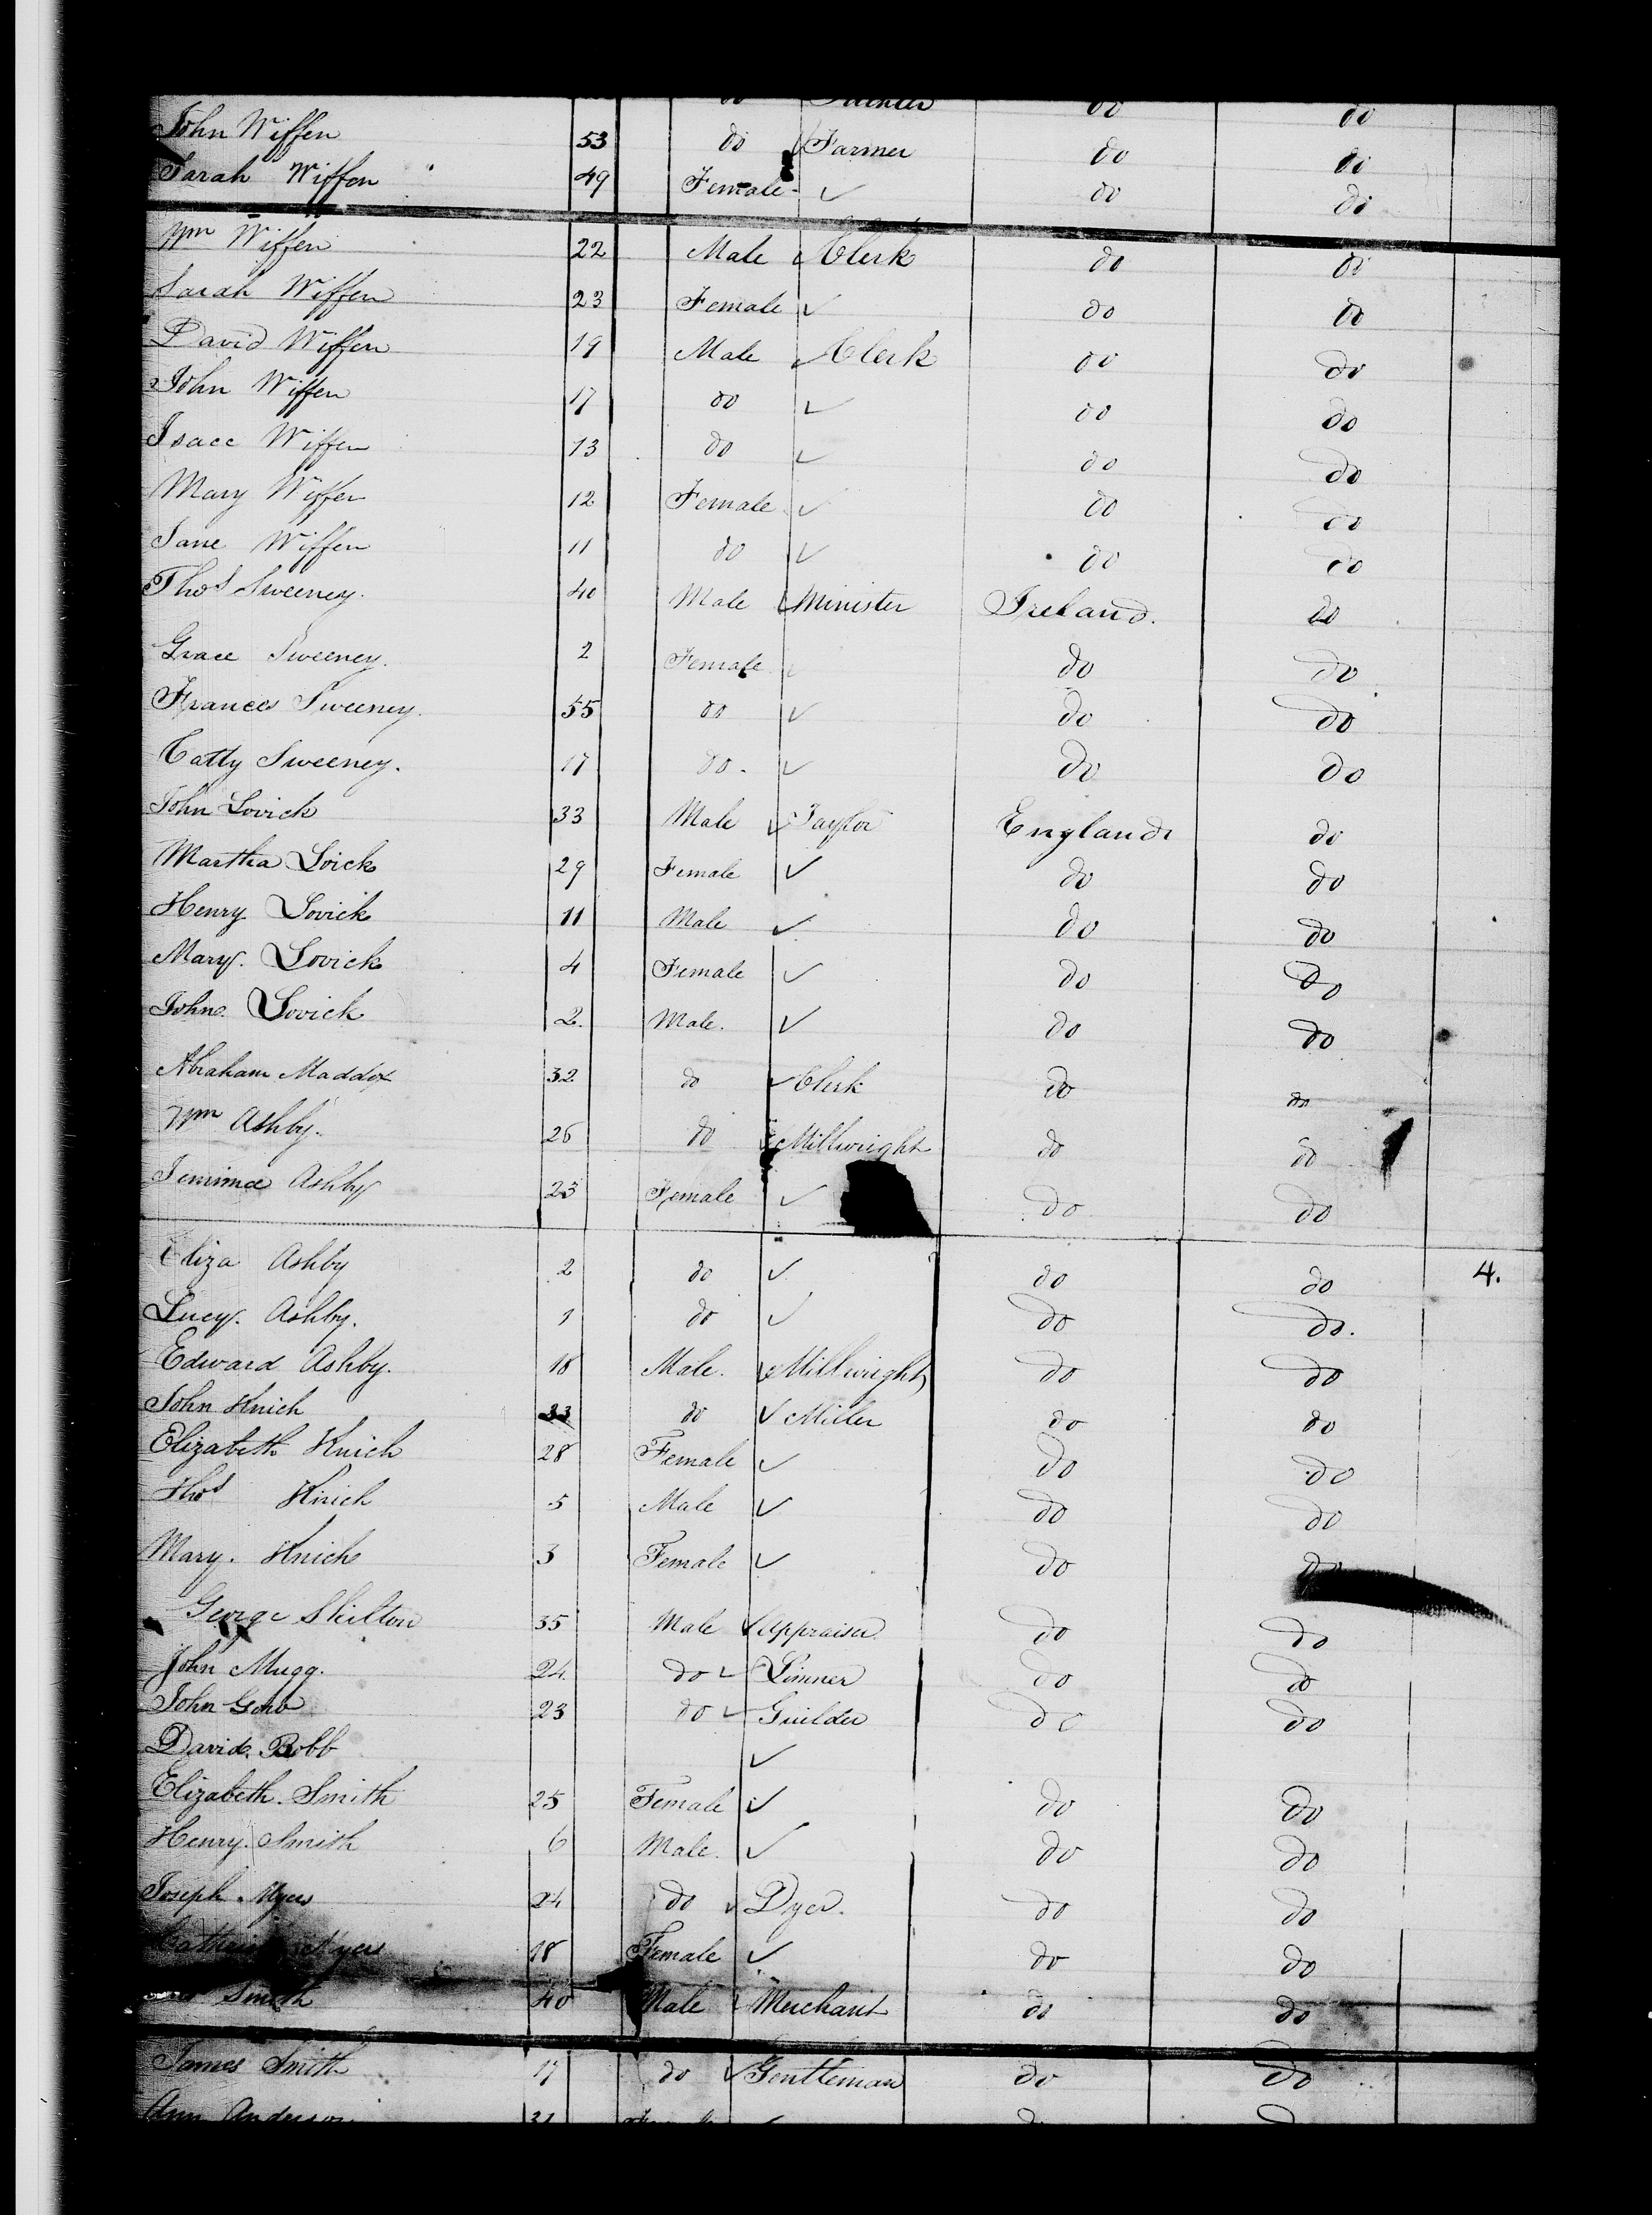 do do do
John Wiffen 53 do Farmer do do
Sarah Wiffen 49 Female do do
Wm Wiffen 22 Male Clerk do do
Sarah Wiffen 23 Female do do
David Wiffen 19 Male Clerk do do
John Wiffen 17 do do do
Isacc Wiffen 13 do do do
Mary Wiffen 12 Female do do
Jane Wiffen 11 do do do
Thos Sweeney. 40 Male Minister Ireland. do
Grace Sweeney. 2 Female do do
Frances Sweeney. 55 do do do
Catty Sweeney. 17 do. do do
John Lovick 33 Male Taylor England do
Martha Loick 29 Female do do
Henry Lovick 11 Male do do
Mary. Lovick 4 Female do do
John. Lovick 2. Male. do do
Abraham Maddox 32 do Clerk do do
Wm Ashby. 26 do Millwright do do
Jemima Ashby 23 Female do do
Eliza Ashby 2 do do do 4.
Lucy. Ashby. 1 do do do.
Edward Ashby. 18 Male. Millwright do do
John Knich 33 do Miller do do
Elizabeth Knich 28 Female do do
Thos Knich 5 Male do do
Mary. Knich 3 Female do do
George Skilton 35 Male Appraiser do do
John Mugg. 24 do Limner do do
John 23 do Guilder do do
David. Bobb
Elizabeth. Smith 25 Female do do
Henry. Smith 6 Male. do do
Joseph Myers 24 do Dyer. do do
Myers 18 Female do do
Smith 40 Male Merchant do do
James Smith 17 do Gentleman do do
Ann Anderson